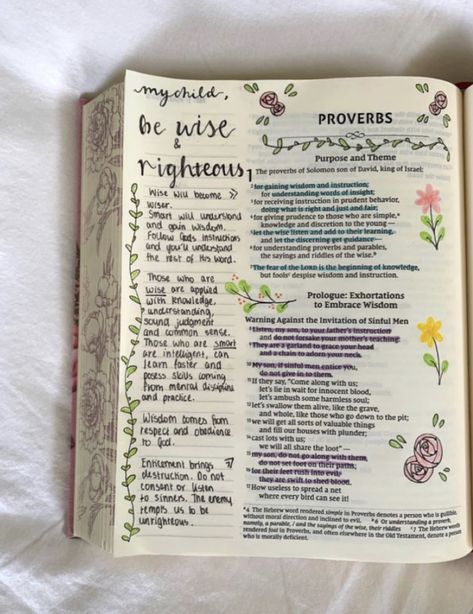 my child,
be wise
&
righteous
Wise will become
wiser.
Smart will understand
and gain wisdom.
Follow Gods instructions
and you'll understand
the rest of His word.
Those who are
wise are applied
with knowledge,
understanding,
sound judgment
and common sense.
Those who are smart
are intelligent, can
learn faster and
posess skills coming
from mental discipline
and practice.
Wisdom comes from
respect and obedience
to God.
Enticement brings
destruction. Do not
consent or listen
to sinners. The enemy
tempts us to be
unrighteous.
PROVERBS
Purpose and Theme
1 The proverbs of Solomon son of David, king of Israel:
2 for gaining wisdom and instruction;
for understanding words of insight;
3 for receiving instruction in prudent behavior,
doing what is right and just and fair;
4 for giving prudence to those who are simple,a
knowledge and discretion to the young—
5 let the wise listen and add to their learning,
and let the discerning get guidance—
6 for understanding proverbs and parables,
the sayings and riddles of the wise.b
7 The fear of the LORD is the beginning of knowledge,
but foolsc despise wisdom and instruction.
Prologue: Exhortations
to Embrace Wisdom
Warning Against the Invitation of Sinful Men
8 Listen, my son, to your father's instruction
and do not forsake your mother's teaching.
9 They are a garland to grace your head
and a chain to adorn your neck.
10 My son, if sinful men entice you,
do not give in to them.
11 If they say, "Come along with us;
let's lie in wait for innocent blood,
let's ambush some harmless soul;
12 let's swallow them alive, like the grave,
and whole, like those who go down to the pit;
13 we will get all sorts of valuable things
and fill our houses with plunder;
14 cast lots with us;
we will all share the loot"—
15 my son, do not go along with them,
do not set foot on their paths;
16 for their feet rush into evil,
they are swift to shed blood.
17 How useless to spread a net
where every bird can see it!
a 4 The Hebrew word rendered simple in Proverbs denotes a person who is gullible,
without moral direction and inclined to evil. b 6 Or understanding a proverb,
namely, a parable, / and the sayings of the wise, their riddles c 7 The Hebrew words
rendered fool in Proverbs, and often elsewhere in the Old Testament, denote a person
who is morally deficient.